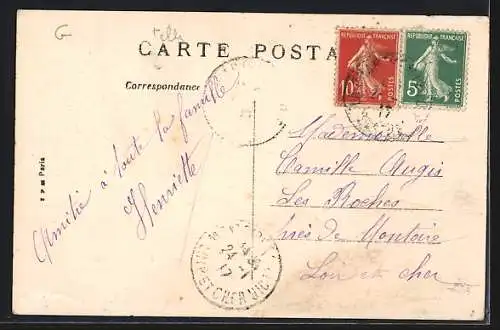 CARTE POSTA
Correspondance
RÉPUBLIQUE FRANÇAISE
10c
POSTES
RÉPUBLIQUE FRANÇAISE
5c
POSTES
17
Amitié à toute la famille
Henriette
Mademoiselle
Camille Augis
Les Roches
près de Montoire
Loir et cher
24 -1
17
LOIR-ET-CHER
Paris